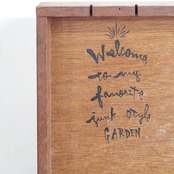 Welcome
to my
favorite
junk style
GARDEN